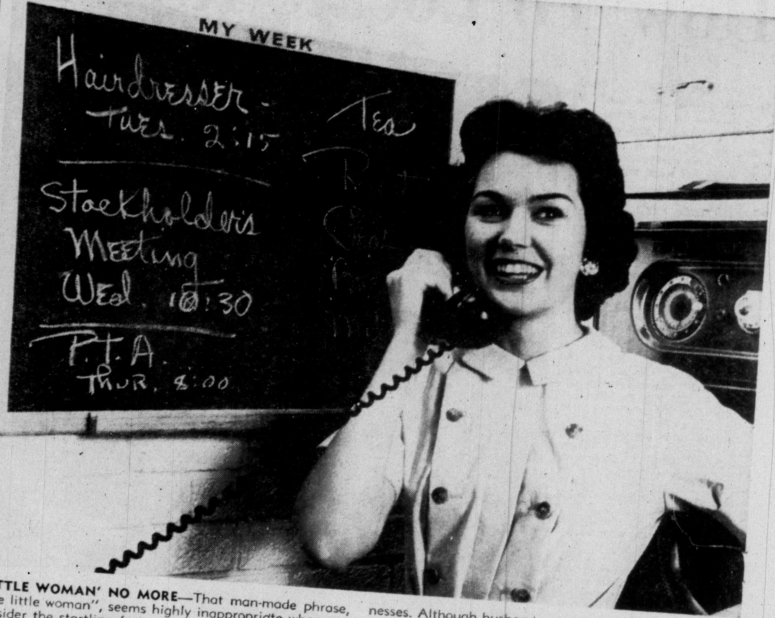 MY WEEK
Hairdresser -
Tues. 2:15
Stockholders
Meeting
Wed. 10:30
P.T.A.
Thur. 8:00
Tea
TTLE WOMAN' NO MORE—That man-made phrase,
e little woman", seems highly inappropriate
sider the
nesses. Although